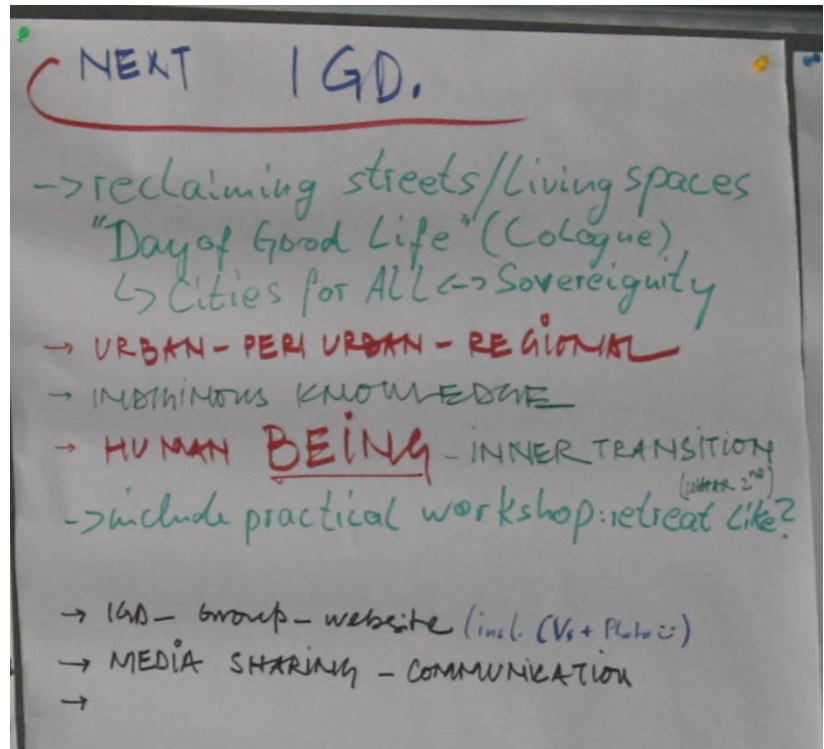 NEXT IGD.
-> reclaiming streets/Living spaces
"Day of Good Life" (Cologne)
↳ Cities for All <-> Sovereignity
→ URBAN - PERI URBAN - REGIONAL
→ INDIGINOUS KNOWLEDGE
→ HUMAN BEING - INNER TRANSITION
-> include practical workshop: retreat like?
→ IGD - Group - website (incl. CVs + Photo ü)
→ MEDIA SHARING - COMMUNICATION
→